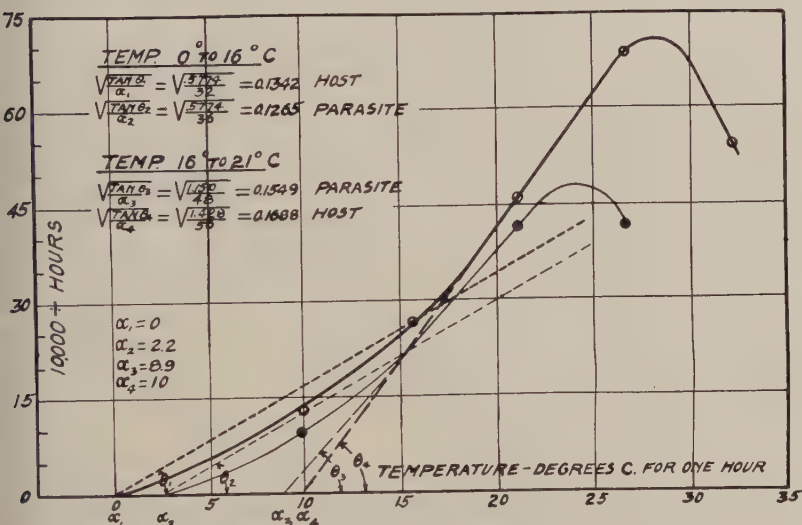 75
60
45
30
15
0
10,000 ÷ HOURS
TEMP. 0° TO 16° C
√TAN θ₁/α₁ = √.5774/32 = 0.1342 HOST
√TAN θ₂/α₂ = √.5774/36 = 0.1265 PARASITE
TEMP. 16° TO 21° C
√TAN θ₃/α₃ = √1.150/48 = 0.1549 PARASITE
√TAN θ₄/α₄ = √1.428/50 = 0.1688 HOST
α₁ = 0
α₂ = 2.2
α₃ = 8.9
α₄ = 10
θ₁ θ₂ θ₃ θ₄
TEMPERATURE – DEGREES C. FOR ONE HOUR
0 5 10 15 20 25 30 35
α₁ α₂ α₃ α₄